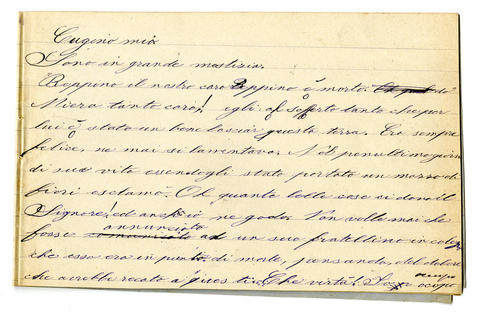 Eugenio mio
Sono in grande mestizia.
Beppino il nostro caro Beppino è morto.
Mi era tanto caro! egli à sofferto tanto che per
lui è stato un bene lasciar questa terra. Era sempre
felice, ne mai si lamentava. Nel penultimo giorno
di sua vita essendogli stato portato un mazzo di
fiori esclamò: Oh quante belle cose ci dona il
Signore! ed anch'io ne godo. Non volle mai che
fosse annunciato ad un suo fratellino in colleg
che esso era in punto di morte, pensando, del dolore
che avrebbe recato a Che virtù!